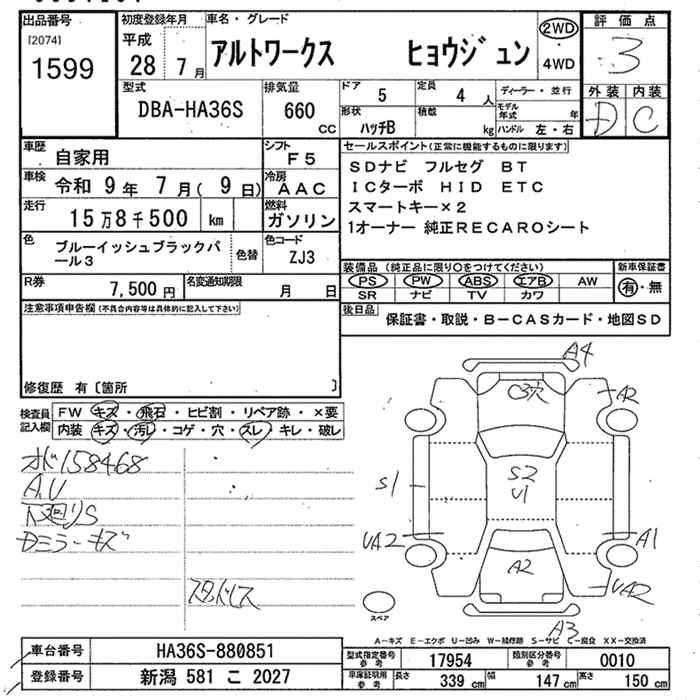 出品番号
[2074]
1599
初度登録年月
平成
28年 7月
車名・グレード
アルトワークス ヒョウジュン
2WD
4WD
評価点
3
外装 内装
D C
型式
DBA-HA36S
排気量
660 cc
ドア 5
定員 4 人
ディーラー・並行
モデル年式 年
形状 ハッチB
積載 kg
ハンドル 左・右
車歴 自家用
シフト F5
車検 令和 9年 7月( 9日)
冷房 AAC
走行 15万8千500 km
燃料 ガソリン
色 ブルーイッシュブラックパール3
色替
色コード ZJ3
R券 7,500円
名変通知期限 月 日
セールスポイント(正常に機能するものに限ります)
SDナビ フルセグ BT
ICターボ HID ETC
スマートキー×2
1オーナー 純正RECAROシート
装備品(純正品に限り○をつけてください)
PS PW ABS エアB AW
SR ナビ TV カワ
新車保証書
有・無
後日品 保証書・取説・B-CASカード・地図SD
注意事項申告欄(不具合内容等は具体的に記入して下さい)
修復歴 有〔箇所 〕
検査員記入欄
FW キズ・飛石・ヒビ割・リペア跡・×要
内装 キズ・汚レ・コゲ・穴・スレ キレ・破レ
158468
A,U
下廻りS
Dミラーキズ
スタッドレス
A4
C3穴
A2
S1
S2
U1
UA2
A1
A2
UA2
A3
スペア
A-キズ E-エクボ U-凹み W-補修跡 S-サビ C-腐食 XX-交換済
車台番号 HA36S-880851
登録番号 新潟 581 こ 2027
型式指定番号参考 17954
類別区分番号参考 0010
車庫証明用参考 長さ 339cm 幅 147cm 高さ 150cm